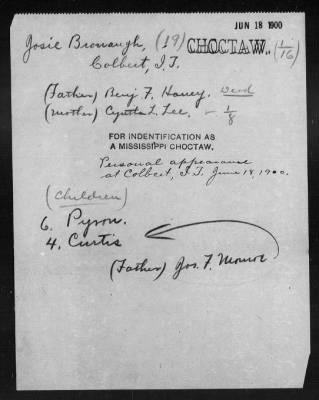 JUN 18 1900
Josie Bronaugh, (19) CHOCTAW. (1/16)
Colbert, I.T.
(Father) Benj F. Haney. Dead
(Mother) Cyntha L. Lee. - 1/8
FOR INDENTIFICATION AS
A MISSISSIPPI CHOCTAW.
Personal appearance
at Colbert, I.T. June 18, 1900.
(Children)
6. Pyron.
4. Curtis
(Father) Jos. F. Monroe